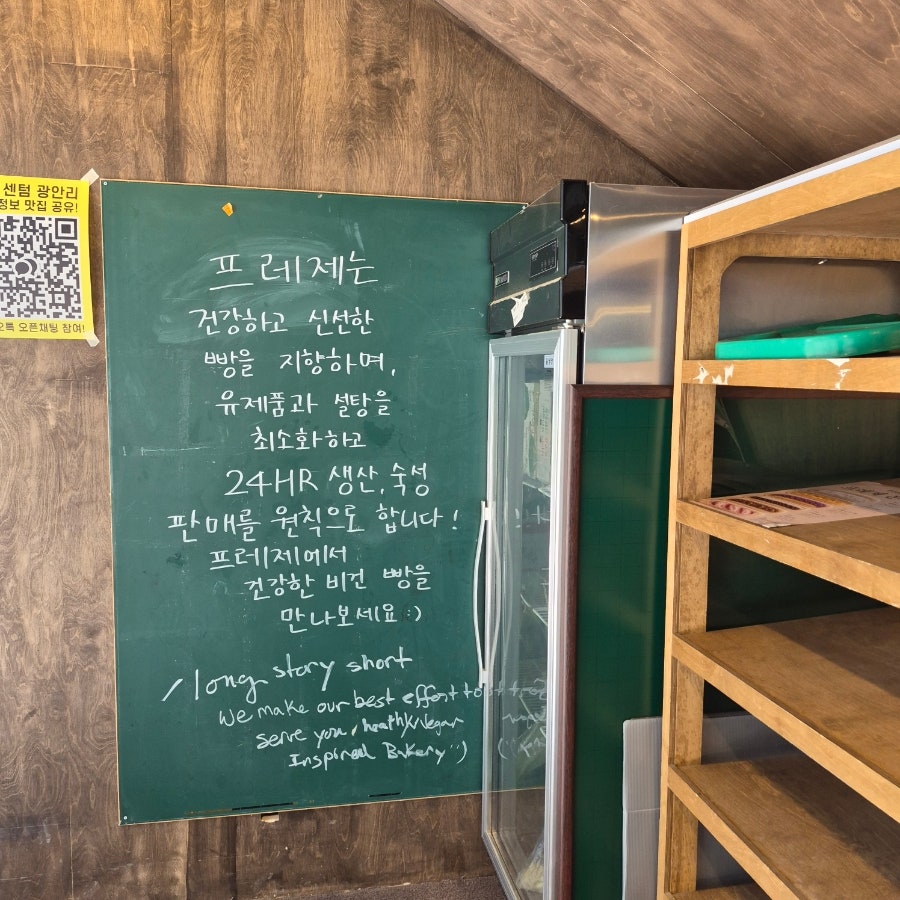 센텀 광안리
정보 맛집 공유!
오픈채팅 참여!
프레제는
건강하고 신선한
빵을 지향하며,
유제품과 설탕을
최소화하고
24HR 생산, 숙성
판매를 원칙으로 합니다!
프레제에서
건강한 비건 빵을
만나보세요 :)
/long story short
We make our best effort to
serve you, healthy vegan
Inspired Bakery :)